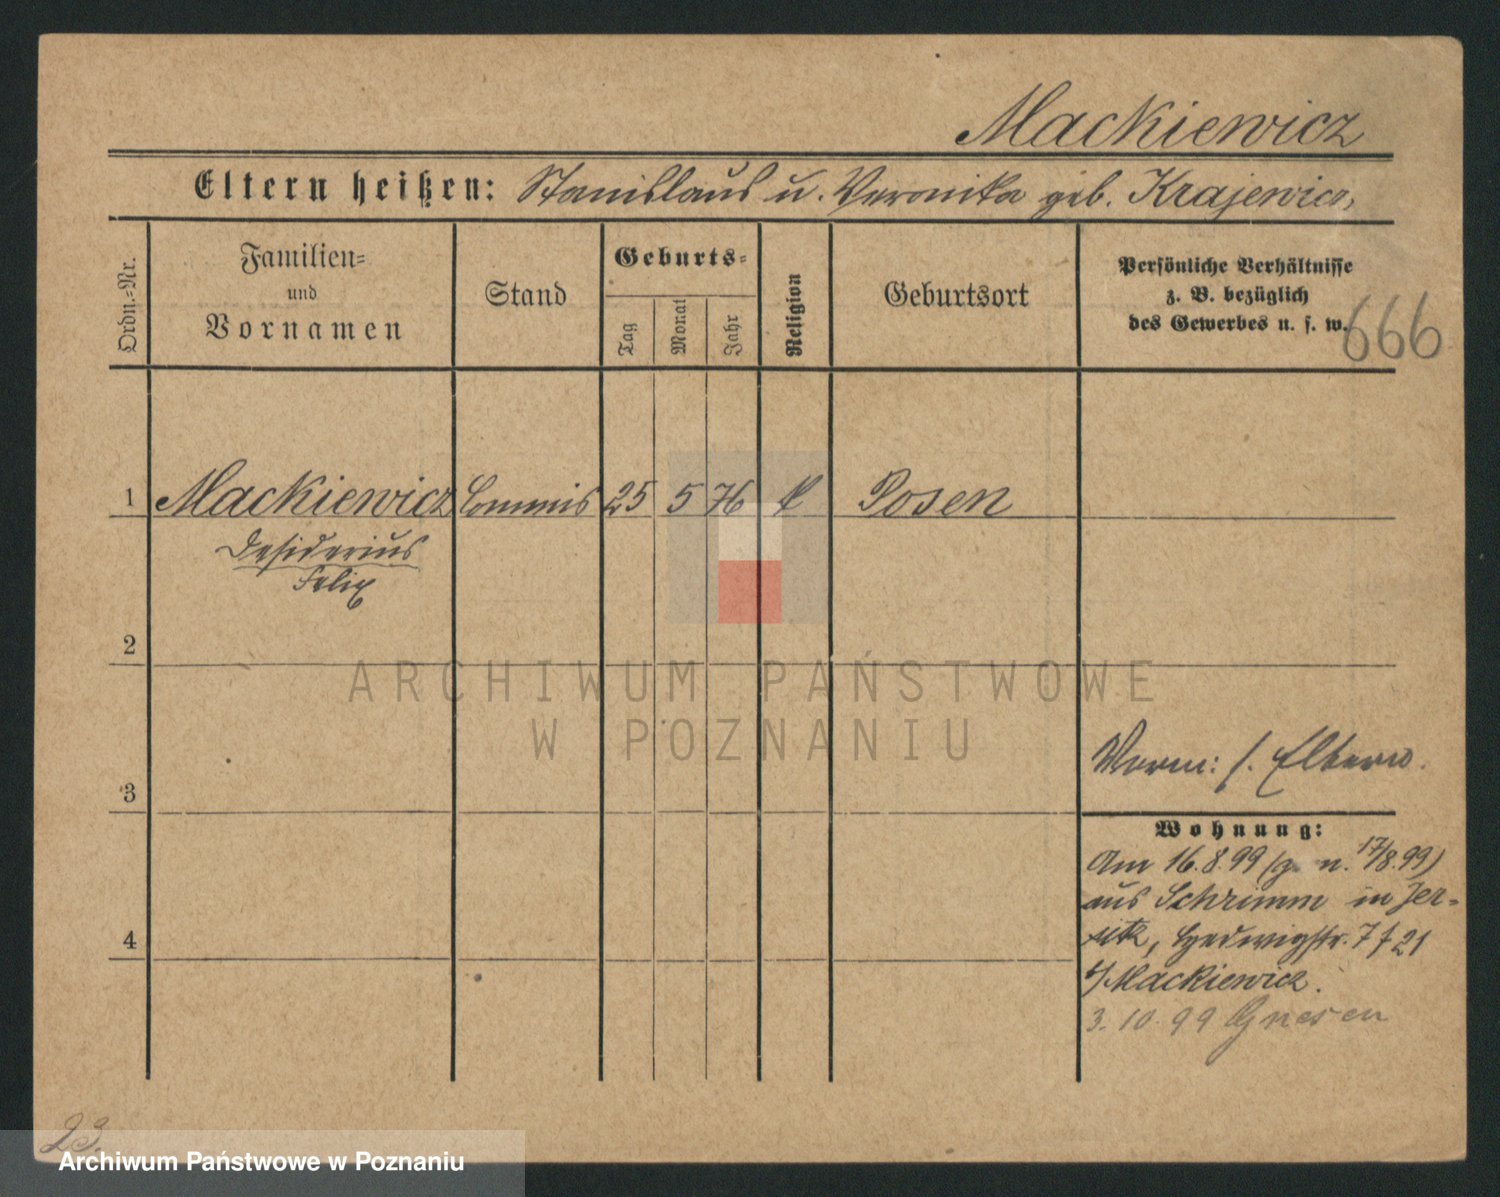 Mackiewicz
Eltern heißen: Stanislaus u. Veronika geb. Krajewicz
Ordn.=Nr.
Familien=
und
Vornamen
Stand
Geburts=
Tag
Monat
Jahr
Religion
Geburtsort
Persönliche Verhältnisse
z. B. bezüglich
des Gewerbes u. s. w.
666
1 Mackiewicz Commis 25 5 76 k Posen
Desiderius
Felix
2
ARCHIWUM PAŃSTWOWE
W POZNANIU
3
Vorm: s. Eltern.
Wohnung:
Am 16.8.99 (g. n. 17/8.99)
aus Schrimm in Jer-
sitz, Hedwigstr. 7 f 21
b/Mackiewicz.
3.10.99 Gnesen
4
23.
Archiwum Państwowe w Poznaniu